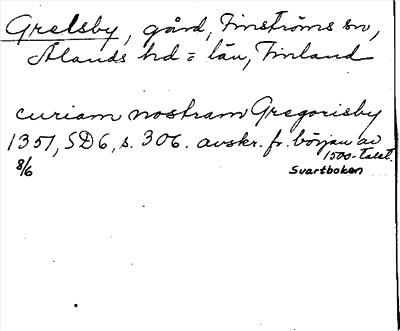 Grelsby, gård, Finströms sn,
Ålands hd = län, Finland
curiam nostram Gregorisby
1351, SD6, s. 306. avskr. fr. början av
1500-talet.
8/6
Svartboken